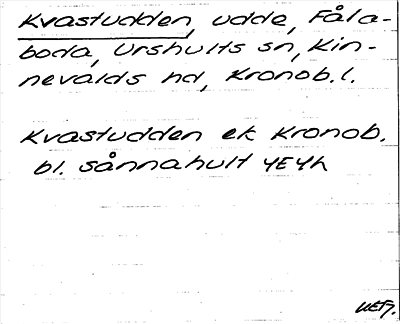 Kvastudden, udde, Fåla-
boda, Urshults sn, Kin-
nevalds hd, Kronob. l.
Kvastudden ek Kronob.
bl. Sånnahult 4E4h